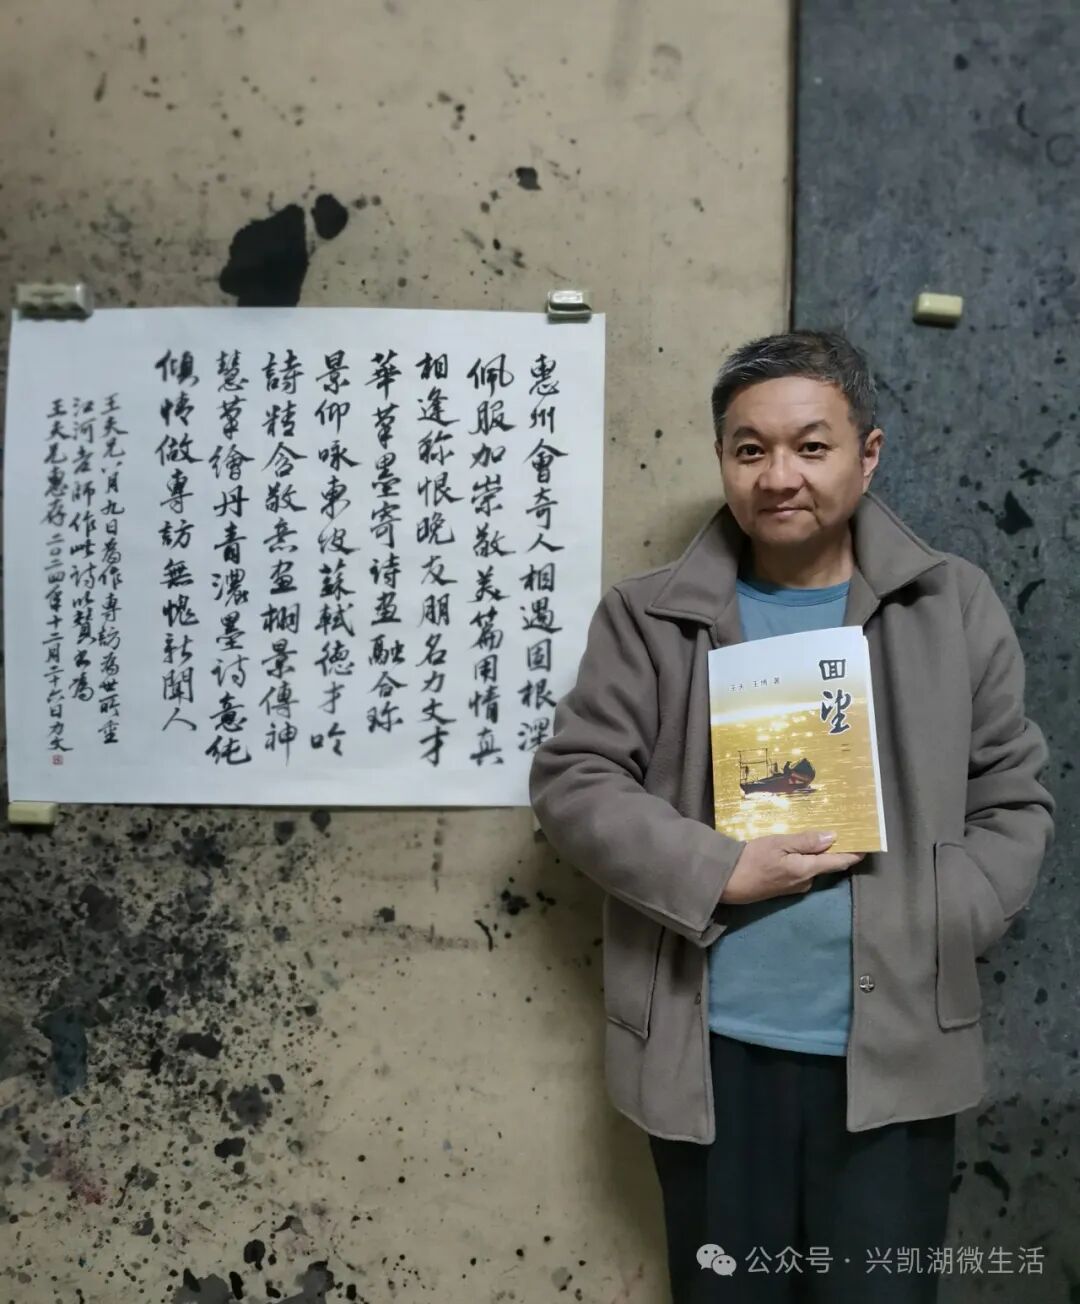 惠州會奇人相遇固根深
佩服加崇敬美篇用情真
相逢称恨晚友朋名力文才
華笔墨寄诗画融合珎
景仰咏東坡蘇軾德才吟
詩精含敬意画棚景傳神
慧草繪丹青濃墨诗意纯
倾情做專訪無愧新聞人
王天兄八月九日為作專訪為世所重
江河老師作此诗以赞书為
王天兄惠存 二〇二四年十二月二十六日力文
回望
二
王天 王博 著
公众号·兴凯湖微生活